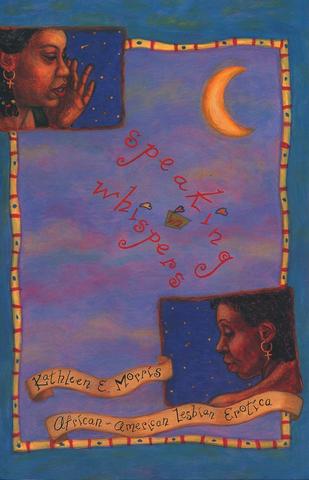 speaking
whispers
Kathleen E. Morris
African-American Lesbian Erotica